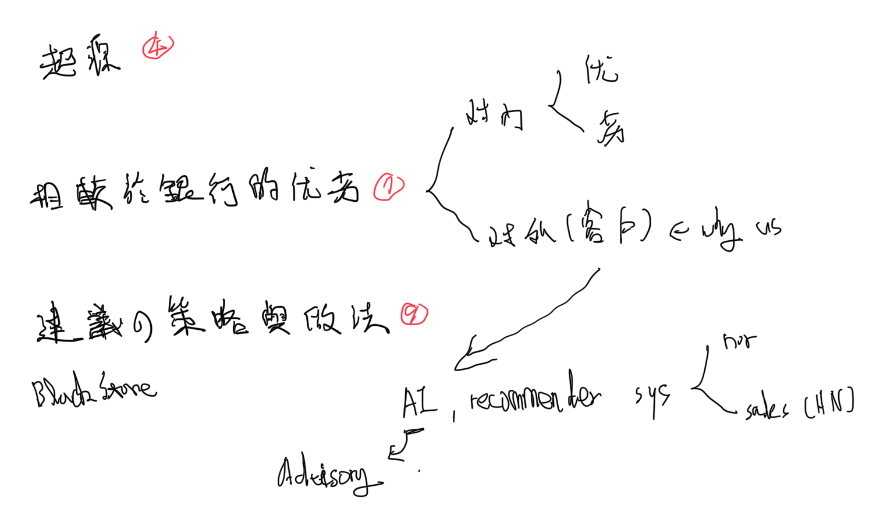 起源 ④
对内
优
劣
相較於銀行的优劣 ⑦
对外(客户) ← why us
建議の策略與做法 ⑨
BlackStone
AI, recommender sys
nor
sales (HN)
Advisory